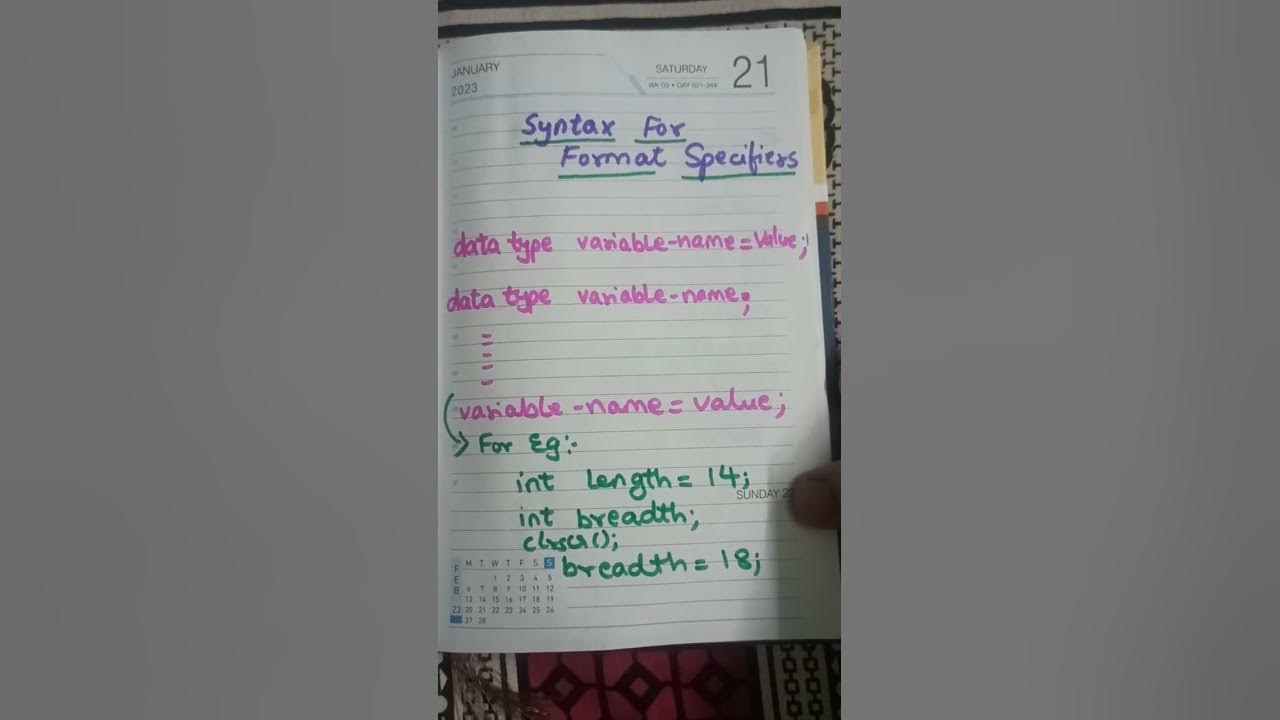 JANUARY
2023
SATURDAY 21
WK 03 • DAY 021-344
Syntax For
Format Specifiers
data type variable-name=Value;
data type variable-name;
variable-name=value;
For Eg:-
int length=14;
SUNDAY 2
int breadth;
clrscr();
breadth=18;
FEB 23
M T W T F S S
1 2 3 4 5
6 7 8 9 10 11 12
13 14 15 16 17 18 19
20 21 22 23 24 25 26
27 28